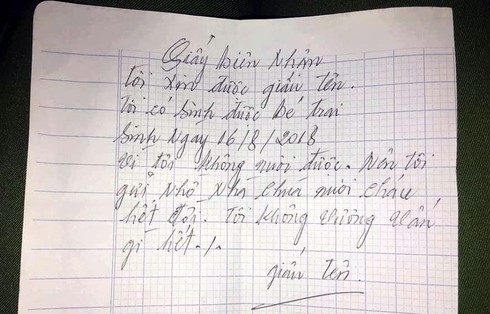 Giấy biên Nhân
tôi xin được giấu tên.
tôi có sinh được bé trai
sinh Ngày 16/8/2018
vì tôi không nuôi được. Nên tôi
gửi Nhờ Nhà chua nuôi cháu
hết đời. Tôi không vướng vấn
gì hết./.
giấu tên.